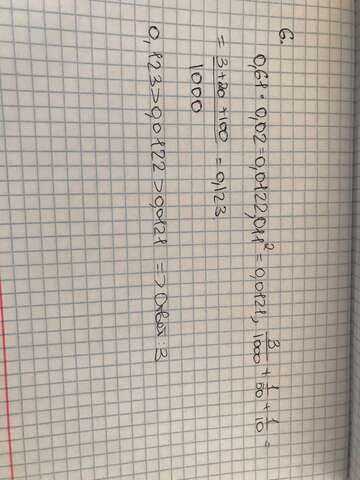 6.
0,61 · 0,02 = 0,0122, 0,11² = 0,0121, 3/1000 + 1/50 + 1/10 =
= (3+20+100)/1000 = 0,123
0,123 > 0,0122 > 0,0121 => Ответ: 3